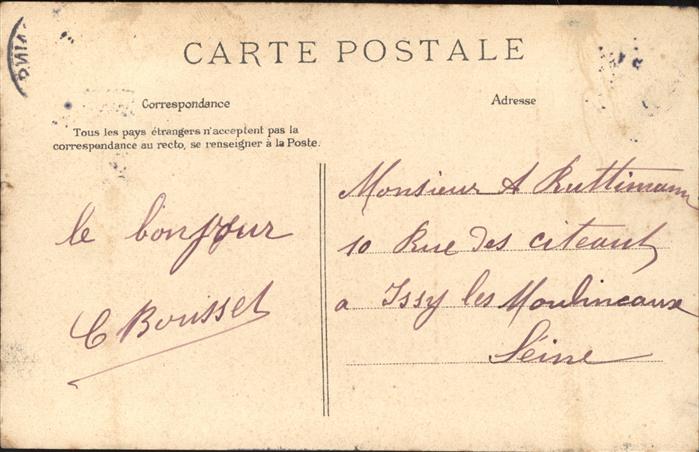 CARTE POSTALE
Correspondance
Adresse
Tous les pays étrangers n'acceptent pas la
correspondance au recto, se renseigner à la Poste.
le bonjour
C Bousset
Monsieur A Ruttimann
10 Rue des citeaux
a Issy les Moulineaux
Séine